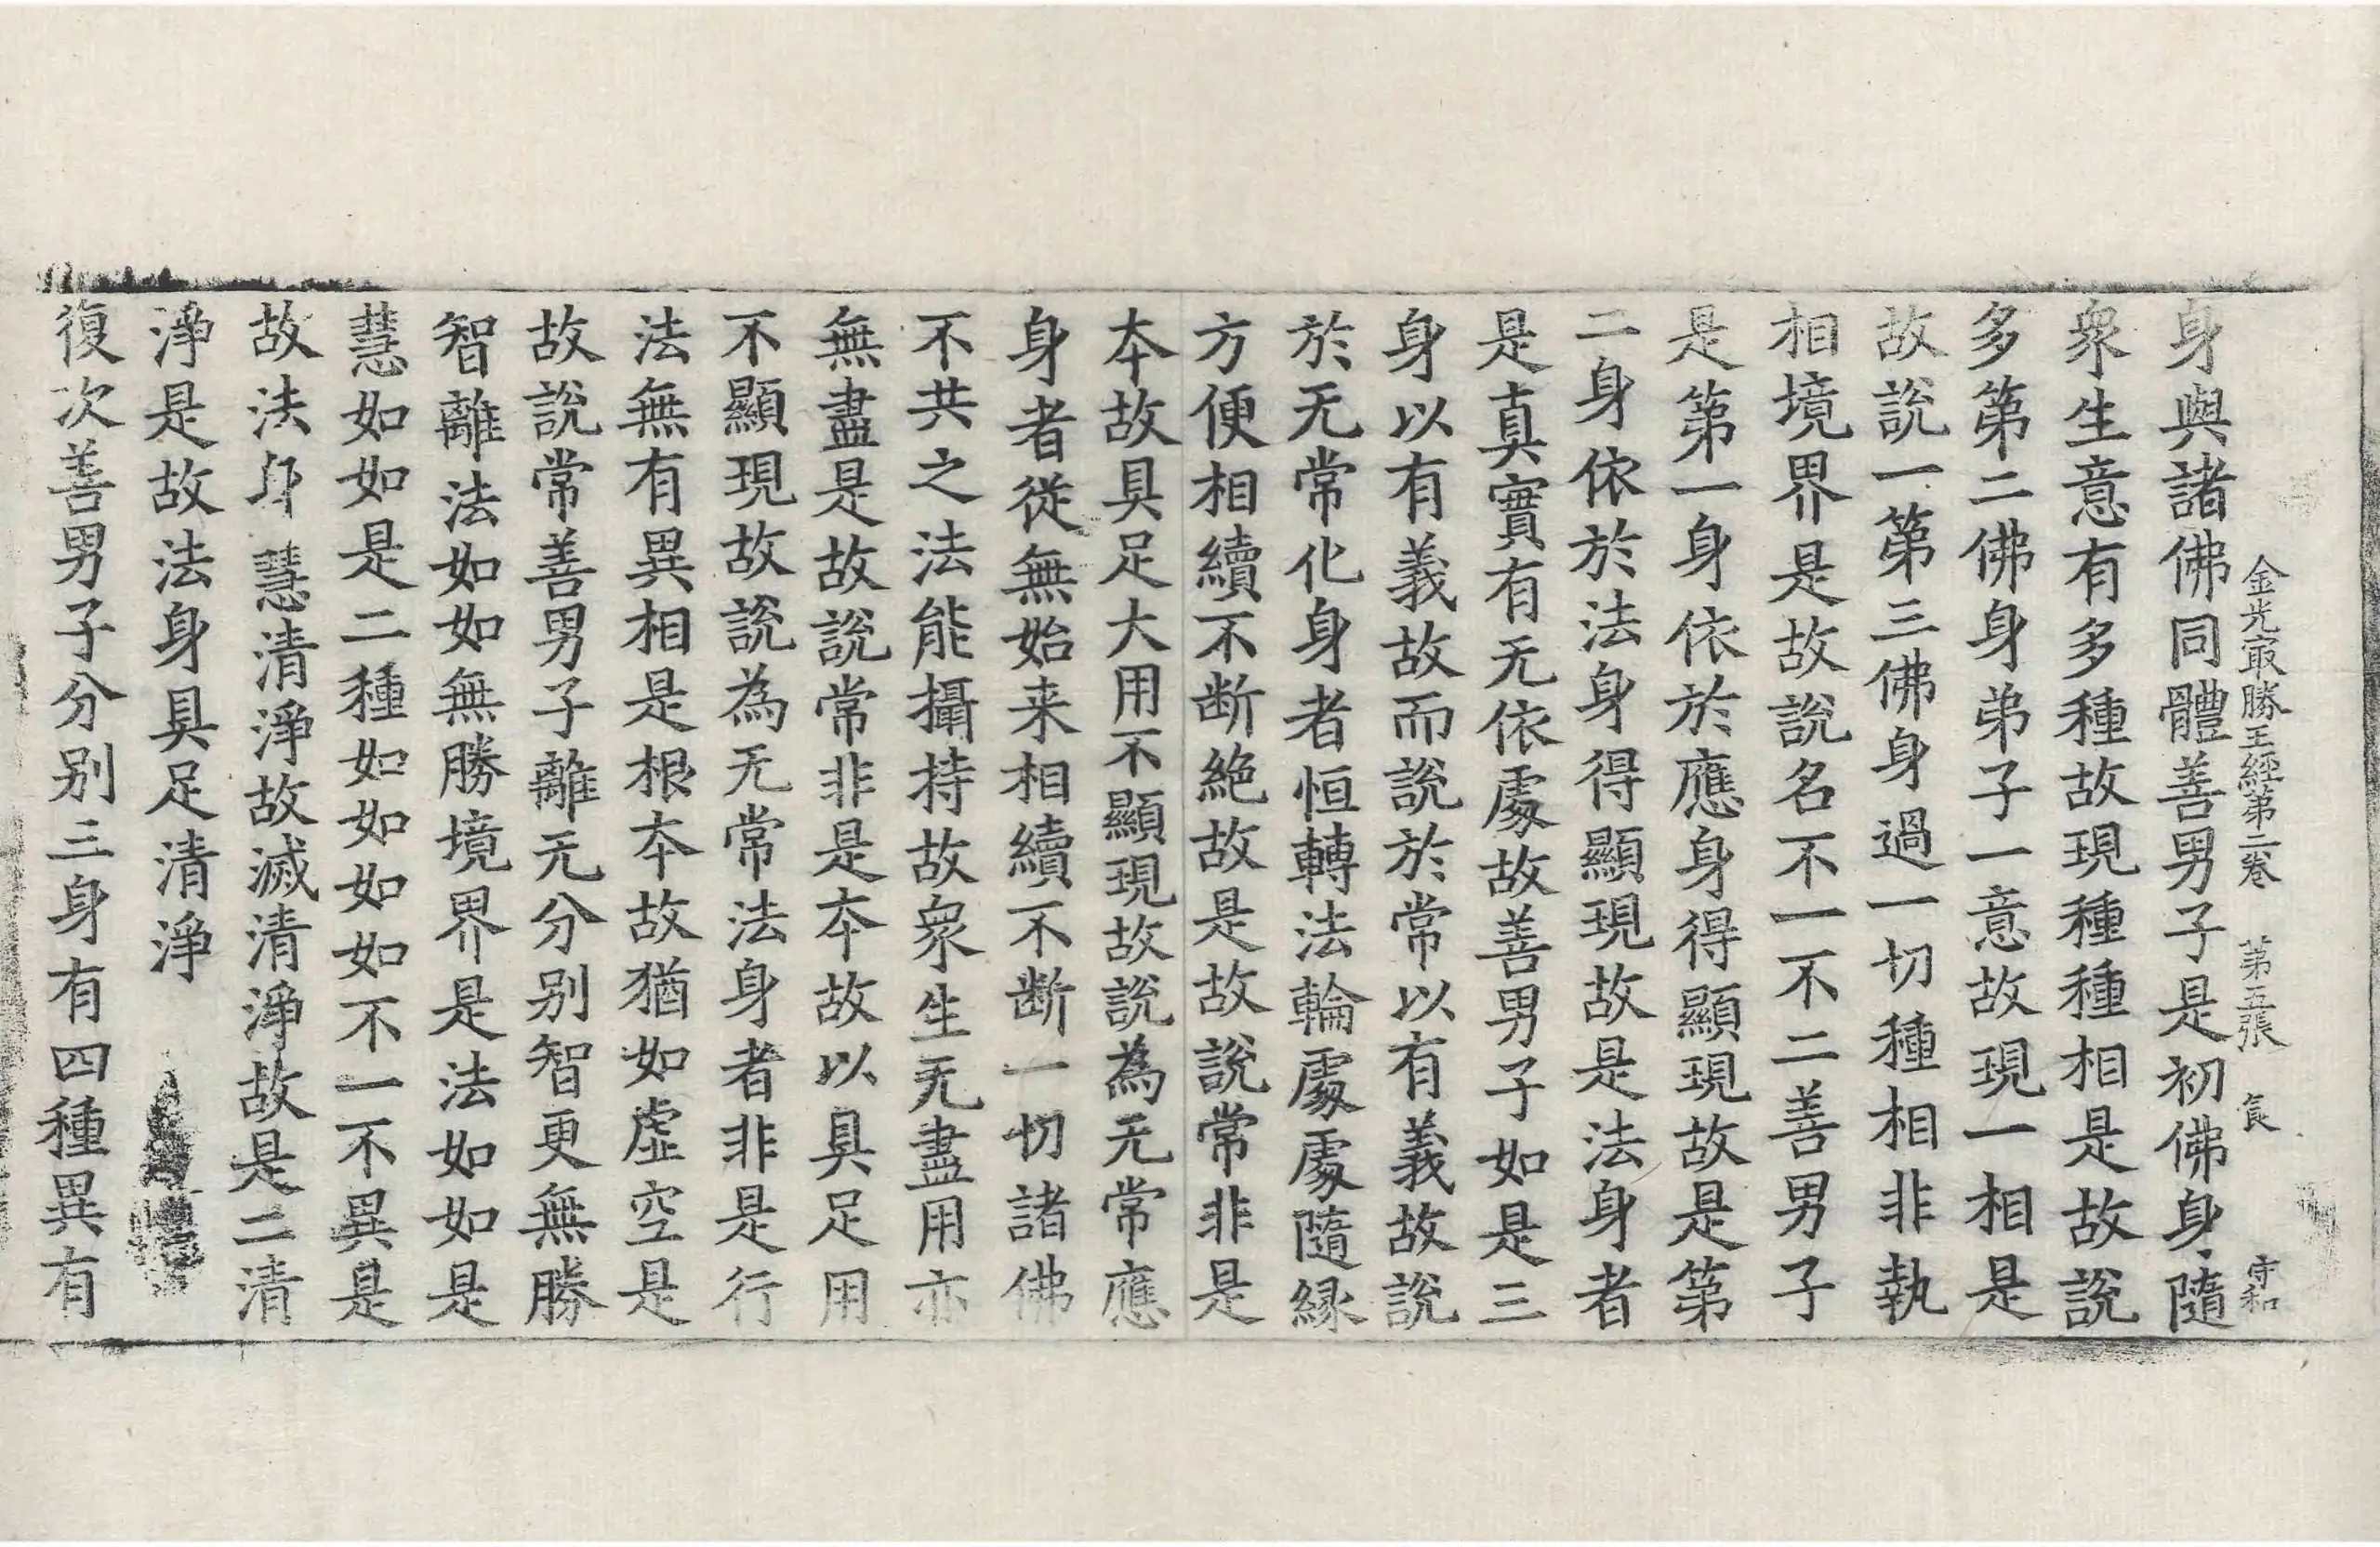 金光㝡勝王經第二卷　第五張　良　守和
身與諸佛同體善男子是初佛身隨
衆生意有多種故現種種相是故說
多第二佛身弟子一意故現一相是
故說一第三佛身過一切種相非執
相境界是故說名不一不二善男子
是第一身依於應身得顯現故是第
二身依於法身得顯現故是法身者
是真實有无依處故善男子如是三
身以有義故而說於常以有義故說
於无常化身者恒轉法輪處處隨緣
方便相續不断絶故是故說常非是
本故具足大用不顯現故說為无常應
身者從無始来相續不断一切諸佛
不共之法能攝持故衆生无盡用亦
無盡是故說常非是本故以具足用
不顯現故說為无常法身者非是行
法無有異相是根本故猶如虚空是
故說常善男子離无分别智更無勝
智離法如如無勝境界是法如如是
慧如如是二種如如如如不一不異是
故法身慧清淨故滅清淨故是二清
淨是故法身具足清淨
復次善男子分别三身有四種異有